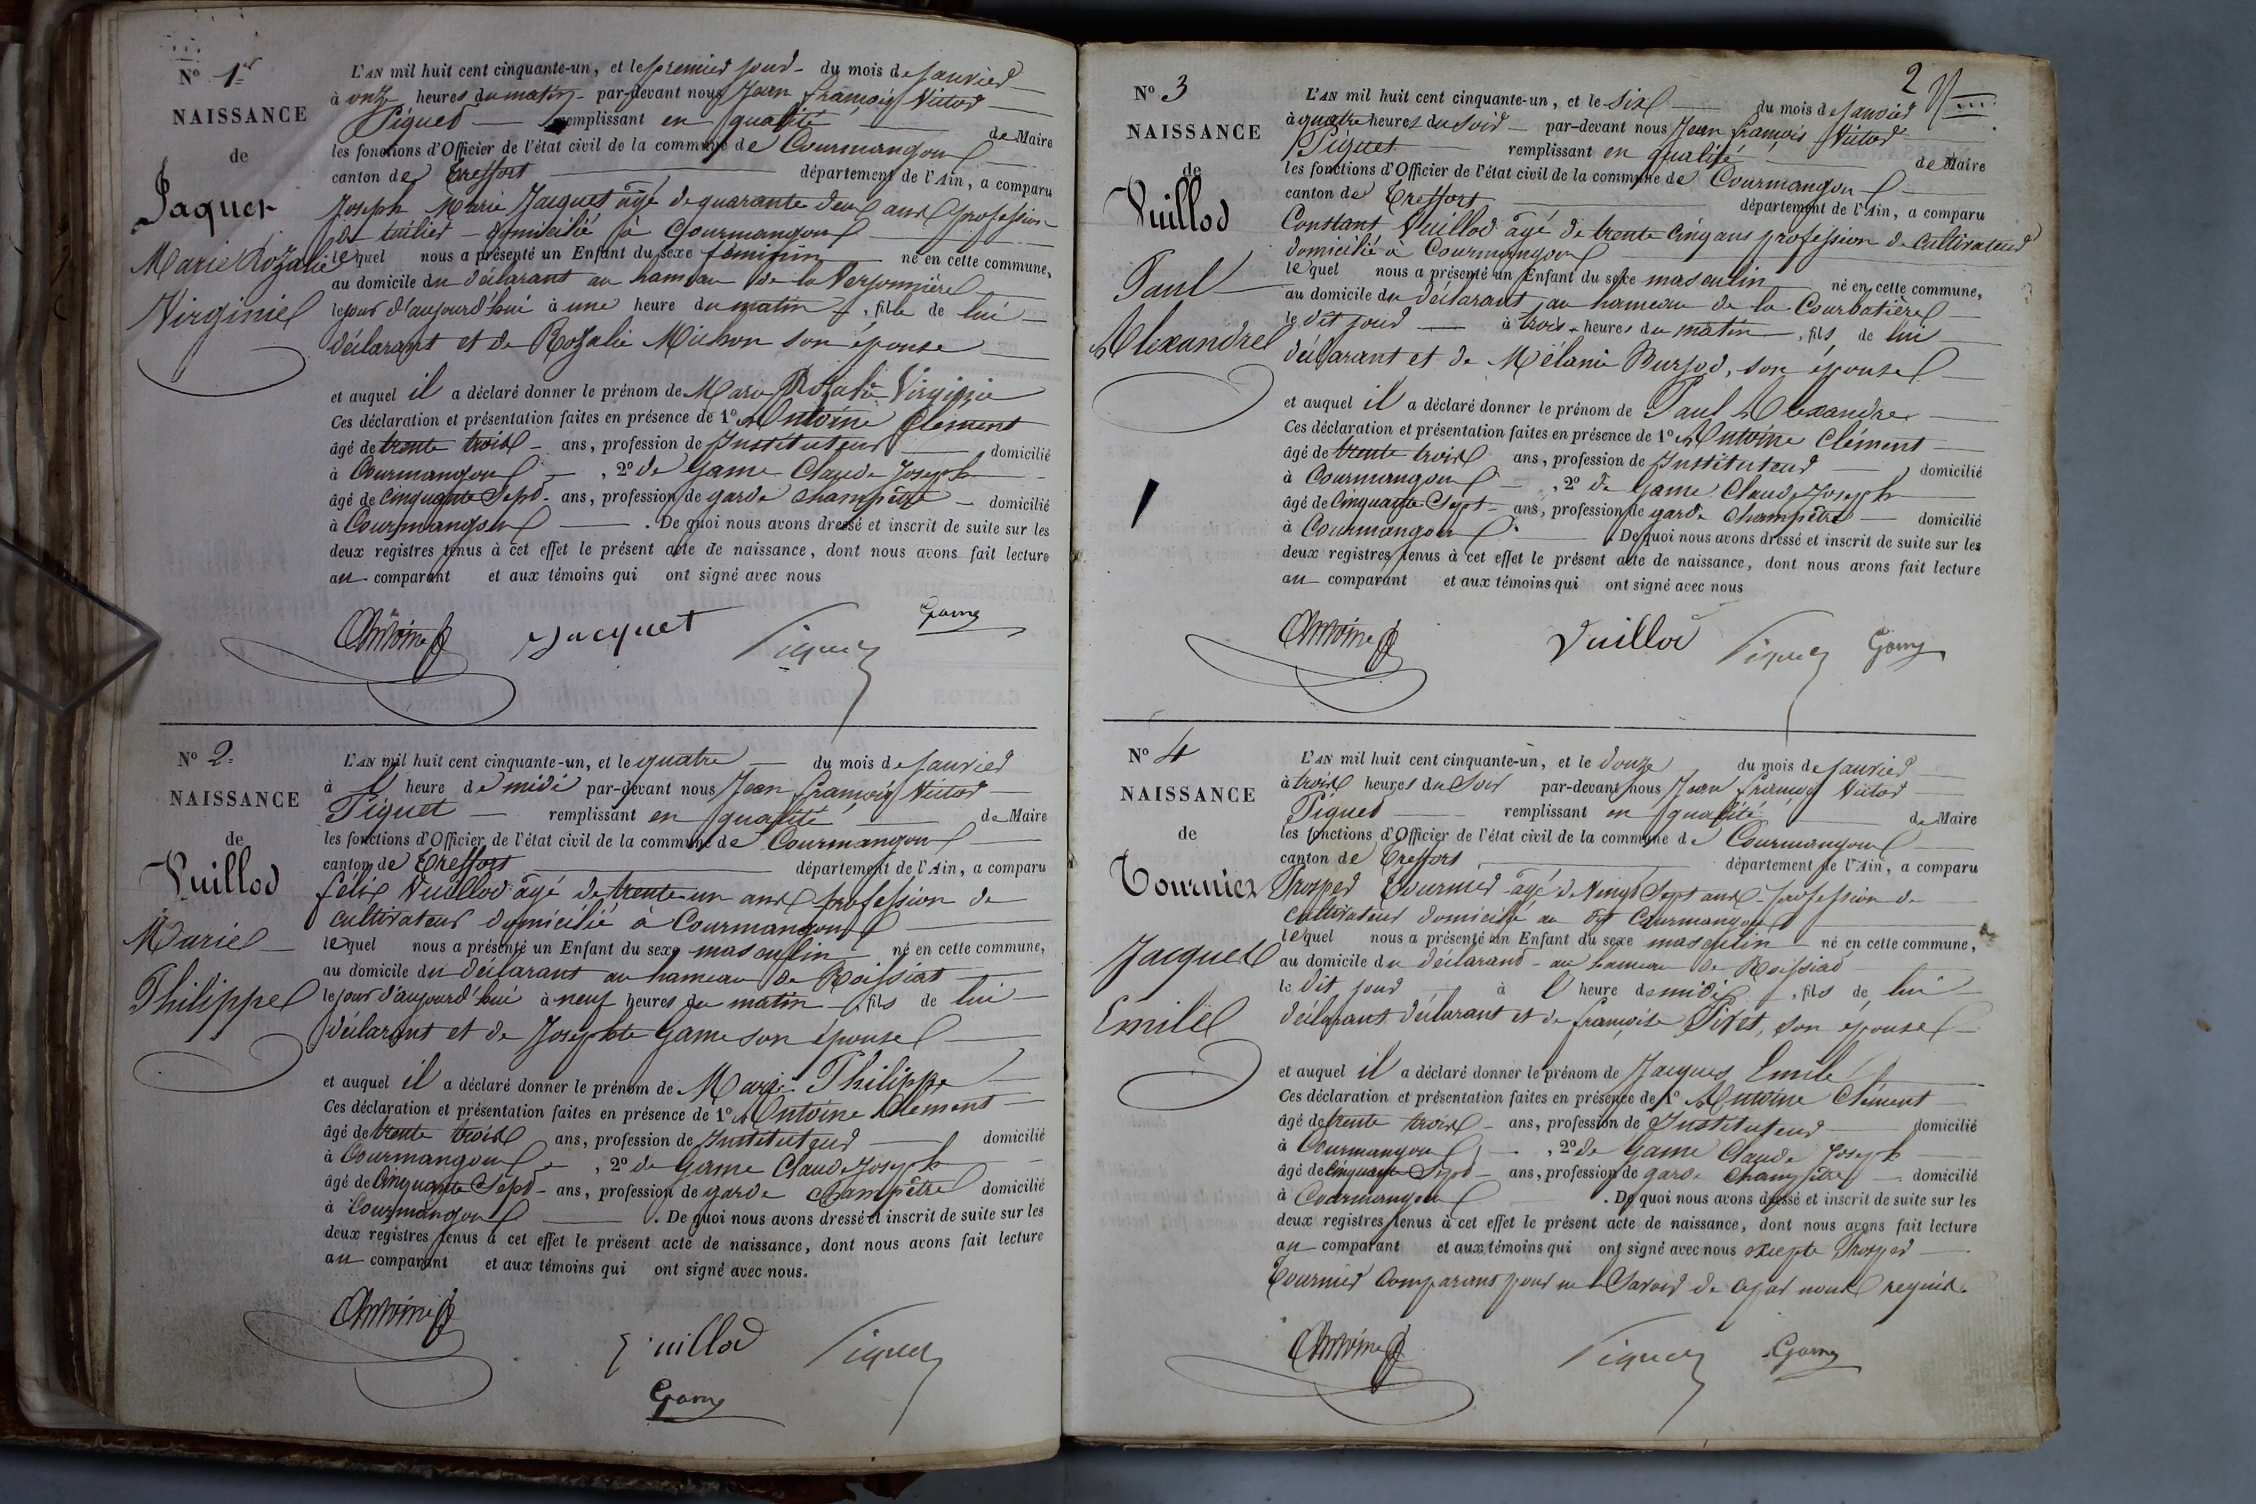 Nº 1er
NAISSANCE
de
Jaquet
Marie Rozalie
Virginie
L'AN mil huit cent cinquante-un, et le premier jour du mois de Janvier
à onze heures du matin par-devant nous Jean françois Victor
Piquet remplissant en qualité de Maire
les fonctions d'Officier de l'état civil de la commune de Courmangoux
canton de Treffort département de l'Ain, a comparu
Joseph Marie Jacquet âgé de quarante deux ans profession
de tuilier domicilié à Courmangoux
lequel nous a présenté un Enfant du sexe féminin né en cette commune,
au domicile du déclarant au hameau de la Verjonnière
le jour d'aujourd'hui à une heure du matin, fille de lui
déclarant et de Rozalie Michon son épouse
et auquel il a déclaré donner le prénom de Marie Rozalie Virginie
Ces déclaration et présentation faites en présence de 1º Antoine Clément
âgé de trente trois ans, profession de Instituteur domicilié
à Courmangoux, 2º de Game Claude Joseph
âgé de cinquante Sept ans, profession de garde champêtre domicilié
à Courmangoux. De quoi nous avons dressé et inscrit de suite sur les
deux registres tenus à cet effet le présent acte de naissance, dont nous avons fait lecture
au comparant et aux témoins qui ont signé avec nous
Antoine Jacquet Piquet Game
Nº 2
NAISSANCE
de
Vuillod
Marie
Philippe
L'AN mil huit cent cinquante-un, et le quatre du mois de Janvier
à l' heure de midi par-devant nous Jean françois Victor
Piquet remplissant en qualité de Maire
les fonctions d'Officier de l'état civil de la commune de Courmangoux
canton de Treffort département de l'Ain, a comparu
félix Vuillod âgé de trente un ans profession de
cultivateur domicilié à Courmangoux
lequel nous a présenté un Enfant du sexe masculin né en cette commune,
au domicile du déclarant au hameau de Roissiat
le jour d'aujourd'hui à neuf heures du matin, fils de lui
déclarant et de Josephte Game son épouse
et auquel il a déclaré donner le prénom de Marie Philippe
Ces déclaration et présentation faites en présence de 1º Antoine Clément
âgé de trente trois ans, profession de Instituteur domicilié
à Courmangoux, 2º de Game Claude Joseph
âgé de Cinquante Sept ans, profession de garde champêtre domicilié
à Courmangoux. De quoi nous avons dressé et inscrit de suite sur les
deux registres tenus à cet effet le présent acte de naissance, dont nous avons fait lecture
au comparant et aux témoins qui ont signé avec nous.
Antoine Vuillod Piquet
Game
2
Nº 3
NAISSANCE
de
Vuillod
Paul
Alexandre
L'AN mil huit cent cinquante-un, et le six du mois de Janvier
à quatre heures du soir par-devant nous Jean françois Victor
Piquet remplissant en qualité de Maire
les fonctions d'Officier de l'état civil de la commune de Courmangoux
canton de Treffort département de l'Ain, a comparu
Constant Vuillod âgé de trente cinq ans profession de cultivateur
domicilié à Courmangoux
lequel nous a présenté un Enfant du sexe masculin né en cette commune,
au domicile du déclarant au hameau de la Courbatière
le dit jour à trois heures du matin, fils de lui
déclarant et de Mélanie Burjod, son épouse
et auquel il a déclaré donner le prénom de Paul Alexandre
Ces déclaration et présentation faites en présence de 1º Antoine Clément
âgé de trente trois ans, profession de Instituteur domicilié
à Courmangoux, 2º de Game Claude Joseph
âgé de Cinquante Sept ans, profession de garde Champêtre domicilié
à Courmangoux. De quoi nous avons dressé et inscrit de suite sur les
deux registres tenus à cet effet le présent acte de naissance, dont nous avons fait lecture
au comparant et aux témoins qui ont signé avec nous
Antoine Vuillod Piquet Game
Nº 4
NAISSANCE
de
Tournier
Jacques
Emile
L'AN mil huit cent cinquante-un, et le douze du mois de Janvier
à trois heures du Soir par-devant nous Jean françois Victor
Piquet remplissant en qualité de Maire
les fonctions d'Officier de l'état civil de la commune de Courmangoux
canton de Treffort département de l'Ain, a comparu
Prosper Tournier âgé de Vingt Sept ans profession de
Cultivateur domicilié au dit Courmangoux
lequel nous a présenté un Enfant du sexe masculin né en cette commune,
au domicile du déclarant au hameau de Roissiat
le dit jour à l' heure de midi, fils de lui
déclarant déclarant et de françoise Pivet, son épouse
et auquel il a déclaré donner le prénom de Jacques Emile
Ces déclaration et présentation faites en présence de 1º Antoine Clément
âgé de trente trois ans, profession de Instituteur domicilié
à Courmangoux, 2º de Game Claude Joseph
âgé de Cinquante Sept ans, profession de garde Champêtre domicilié
à Courmangoux. De quoi nous avons dressé et inscrit de suite sur les
deux registres tenus à cet effet le présent acte de naissance, dont nous avons fait lecture
au comparant et aux témoins qui ont signé avec nous excepté Prosper
Tournier Comparant pour ne Savoir de ce par nous requis.
Antoine Piquet Game